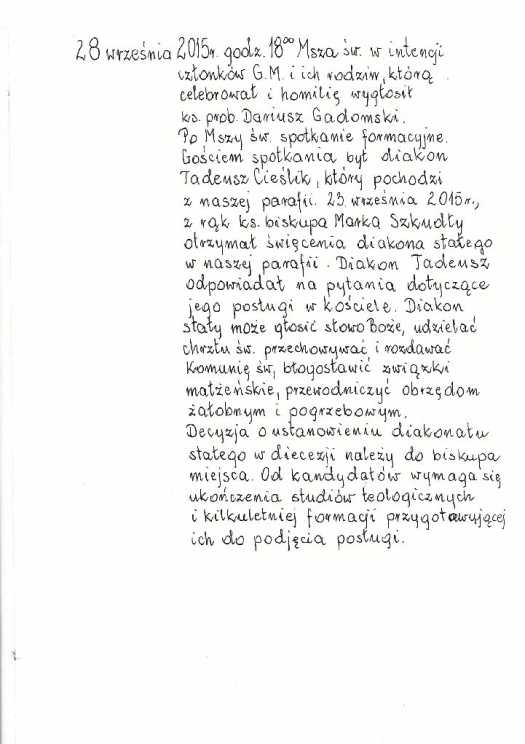 28 września 2015r. godz. 18⁰⁰ Msza św. w intencji
członków G.M. i ich rodzin, którą
celebrował i homilię wygłosił
ks. prob. Dariusz Gadomski.
Po Mszy św. spotkanie formacyjne.
Gościem spotkania był diakon
Tadeusz Cieślik, który pochodzi
z naszej parafii. 23 września 2015r.,
z rąk ks. biskupa Marka Szkudły
otrzymał święcenia diakona stałego
w naszej parafii. Diakon Tadeusz
odpowiadał na pytania dotyczące
jego posługi w kościele. Diakon
stały może głosić słowo Boże, udzielać
chrztu św. przechowywać i rozdawać
Komunię św, błogosławić związki
małżeńskie, przewodniczyć obrzędom
żałobnym i pogrzebowym.
Decyzja o ustanowieniu diakonatu
stałego w diecezji należy do biskupa
miejsca. Od kandydatów wymaga się
ukończenia studiów teologicznych
i kilkuletniej formacji przygotowującej
ich do podjęcia posługi.